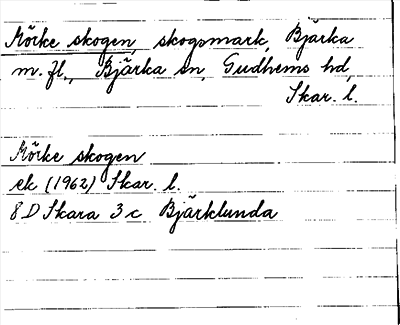 Mörke skogen, skogsmark, Bjärka
m. fl., Bjärka sn, Gudhems hd,
Skar. l.
Mörke skogen
ek (1962) Skar. l.
8D Skara 3c Bjärklunda